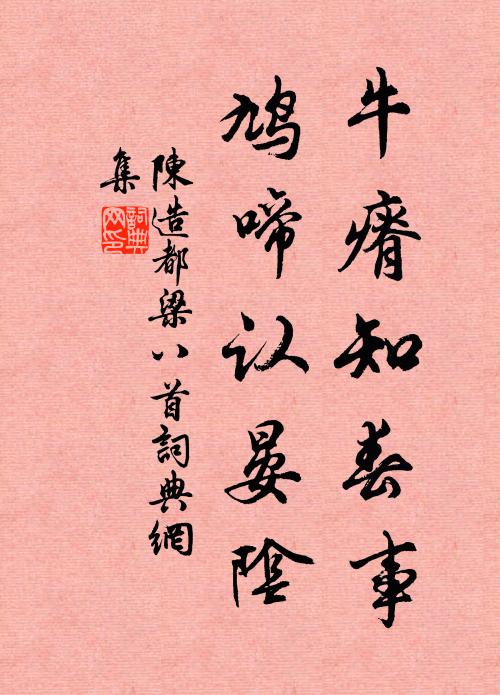 牛瘠知春事
鳩啼认晏陰
陳造都梁八首詞典網
集
詞典
网印